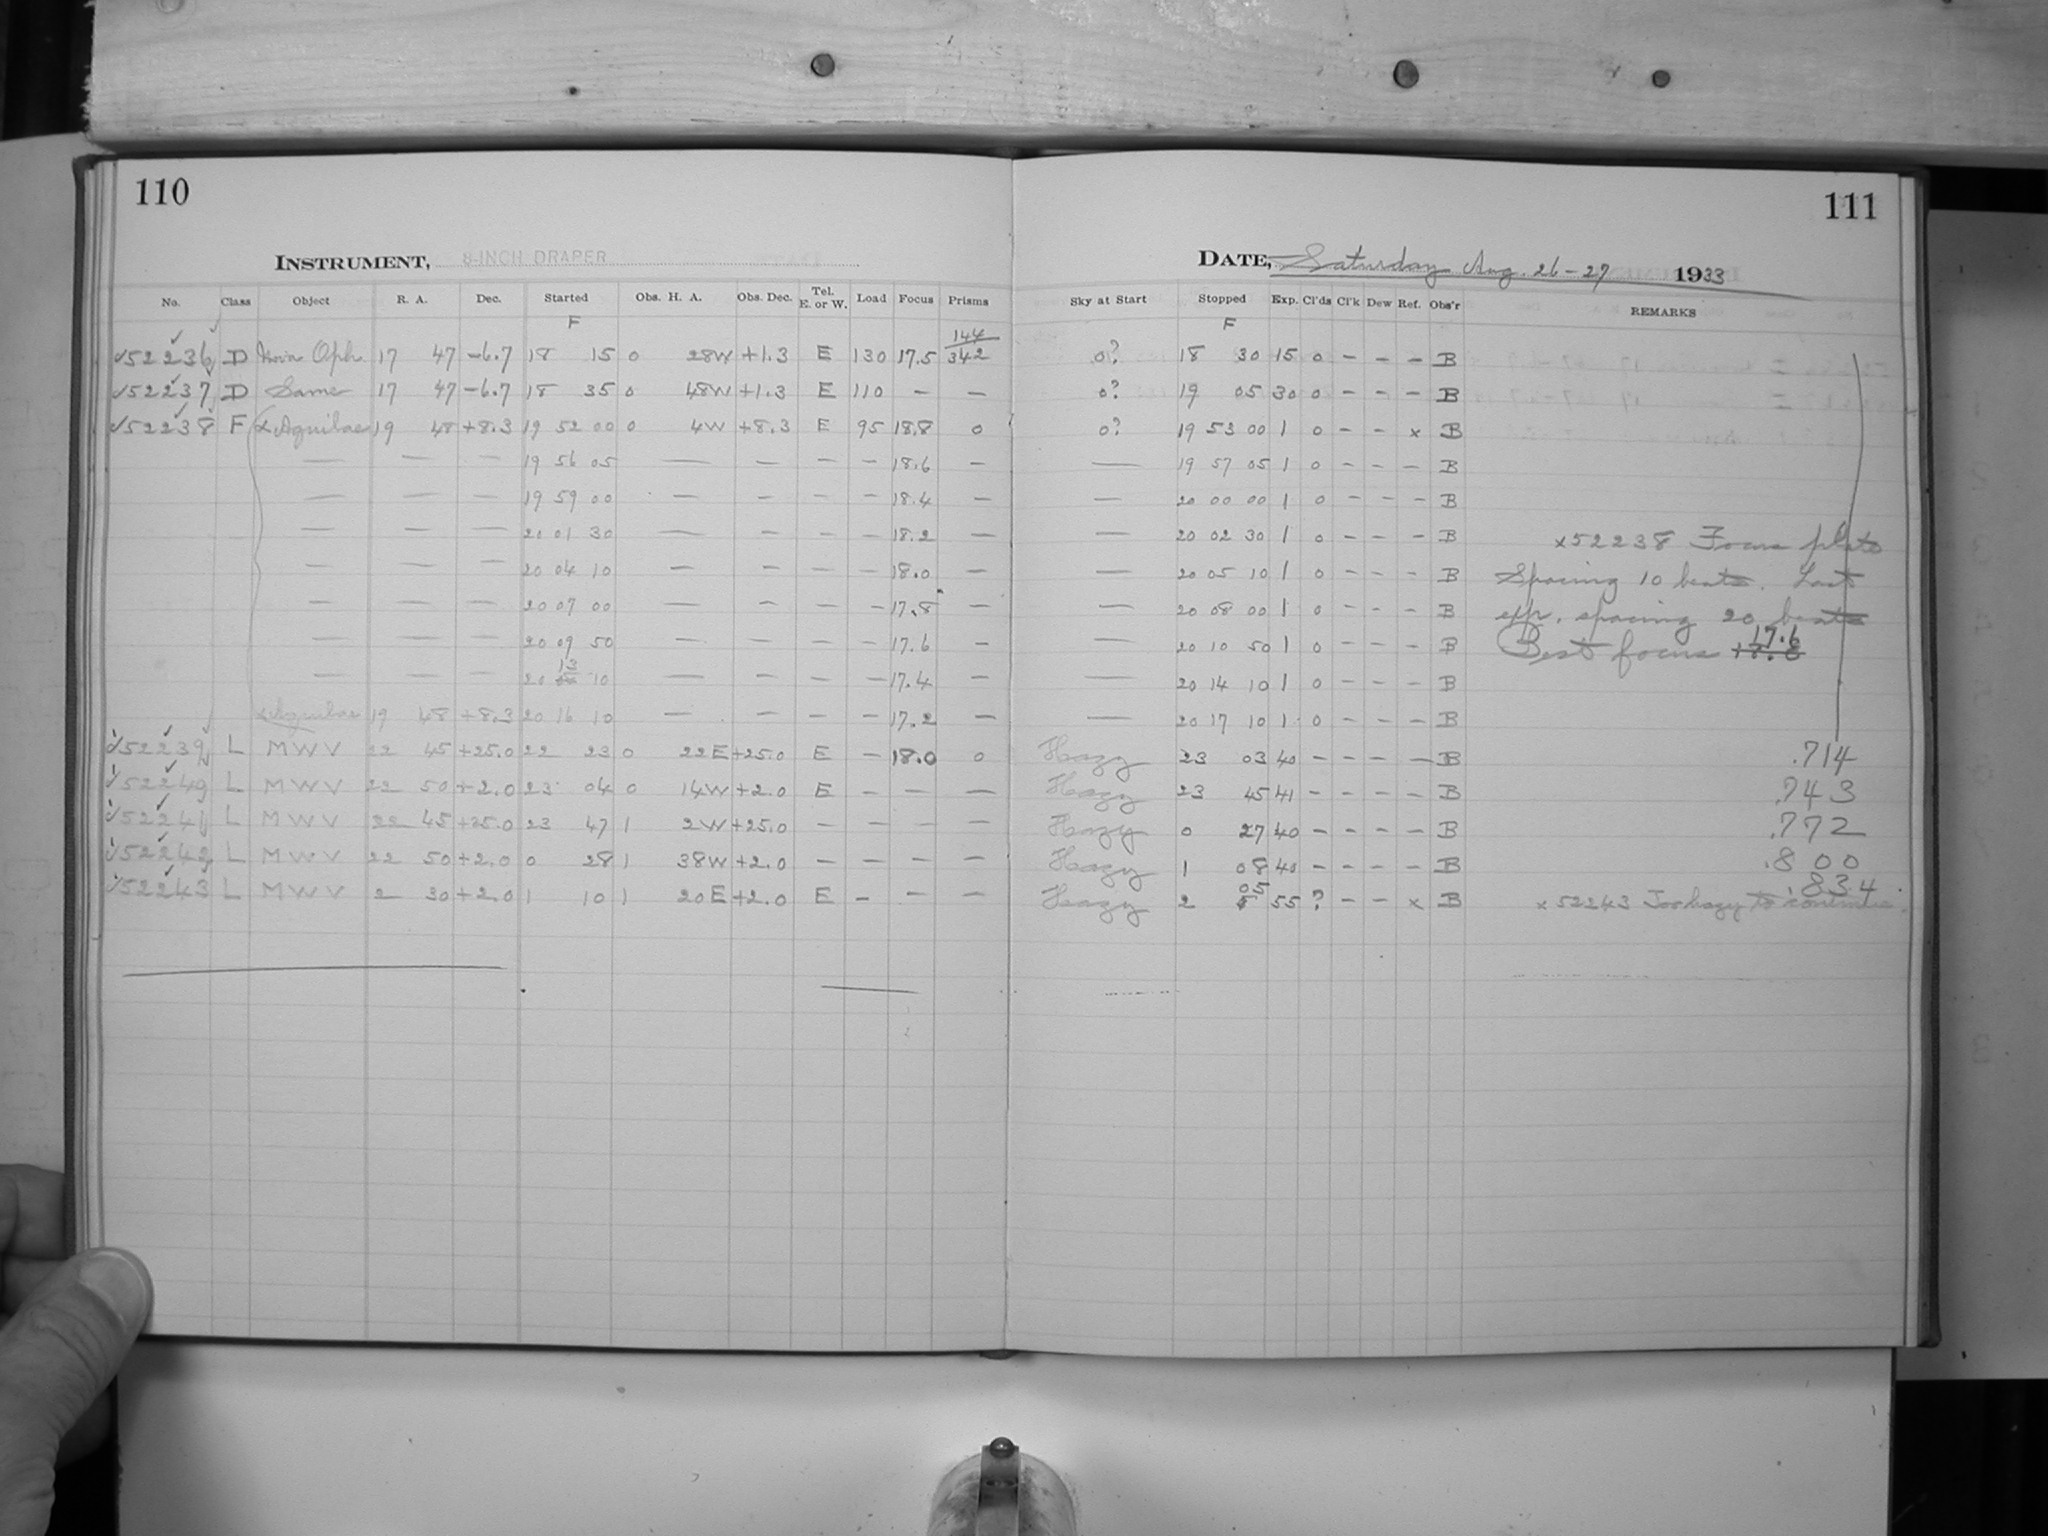 110
111
INSTRUMENT, 8-INCH DRAPER
DATE, Saturday Aug. 26-27 1933
No. Class Object R. A. Dec. Started Obs. H. A. Obs. Dec. Tel. E. or W. Load Focus Prisms Sky at Start Stopped Exp. Cl'ds Cl'k Dew Ref. Obs'r REMARKS
F F
144
52236 D Nova Oph 17 47 -6.7 18 15 0 28W +1.3 E 130 17.5 342 0? 18 30 15 0 - - - B
52237 D Same 17 47 -6.7 18 35 0 48W +1.3 E 110 - - 0? 19 05 30 0 - - - B
52238 F α Aquilae 19 48 +8.3 19 52 00 0 4W +8.3 E 95 18.8 0 0? 19 53 00 1 0 - - x B
— — — 19 56 05 — — — — 18.6 — — 19 57 05 1 0 - - - B
— — — 19 59 00 — — — — 18.4 — — 20 00 00 1 0 - - - B
— — — 20 01 30 — — — — 18.2 — — 20 02 30 1 0 - - - B x52238 Focus plate
— — — 20 04 10 — — — — 18.0 — — 20 05 10 1 0 - - - B Spacing 10 beats. Last
— — — 20 07 00 — — — — 17.8 — — 20 08 00 1 0 - - - B exp. spacing 20 beats
— — — 20 09 50 — — — — 17.6 — — 20 10 50 1 0 - - - B Best focus 17.6
— — — 20 13 10 — — — — 17.4 — — 20 14 10 1 0 - - - B
α Aquilae 19 48 +8.3 20 16 10 — — — — 17.2 — — 20 17 10 1 0 - - - B
52239 L MWV 22 45 +25.0 22 23 0 22E +25.0 E — 18.0 0 Hazy 23 03 40 - - - - B .714
52240 L MWV 22 50 +2.0 23 04 0 14W +2.0 E — — — Hazy 23 45 41 - - - - B .743
52241 L MWV 22 45 +25.0 23 47 1 2W +25.0 — — — — Hazy 0 27 40 - - - - B .772
52242 L MWV 22 50 +2.0 0 28 1 38W +2.0 — — — — Hazy 1 08 40 - - - - B .800
52243 L MWV 2 30 +2.0 1 10 1 20E +2.0 E — — — Hazy 2 05 55 ? - - x B .834
x 52243 Too hazy to continue.